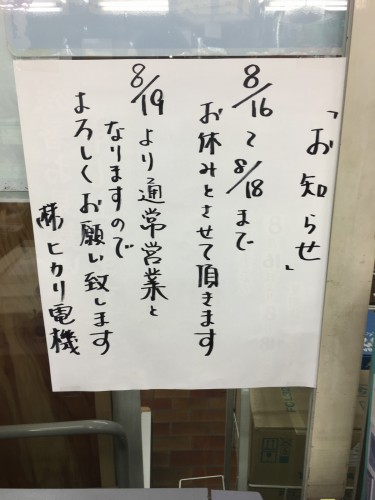 「お知らせ」
8/16〜8/18まで
お休みとさせて頂きます
8/19より通常営業と
なりますので
よろしくお願い致します
㈱ヒカリ電機